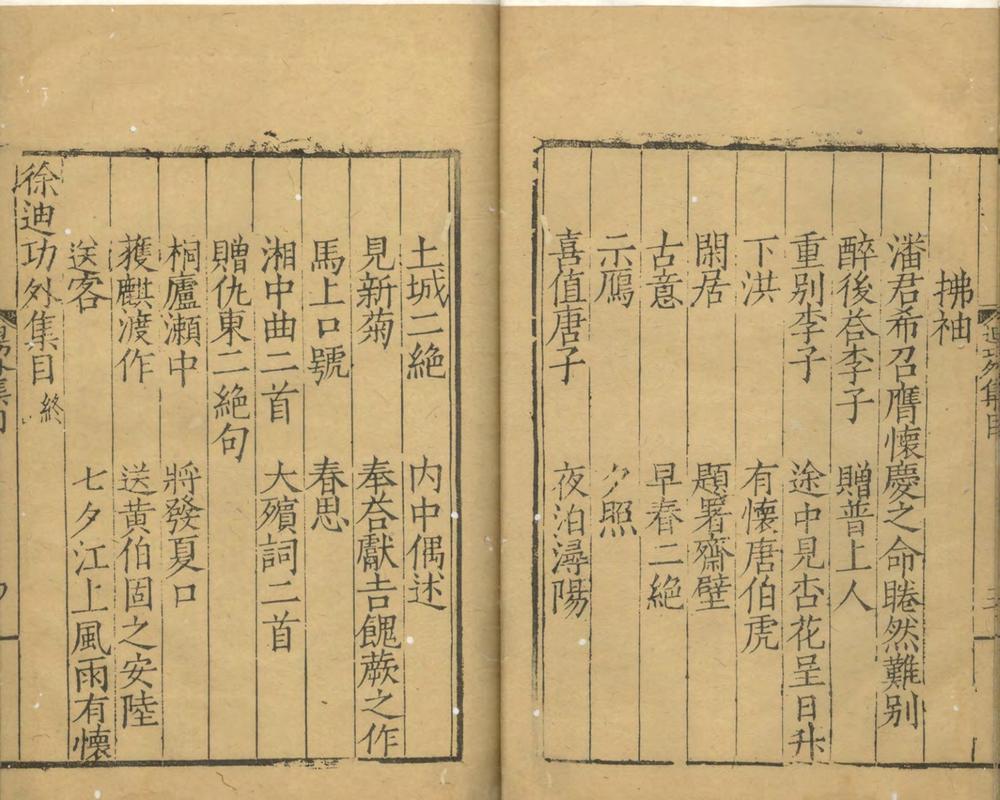 拂袖
潘君希召膺懷慶之命睠然難别
醉後荅李子　贈普上人
重别李子　途中見杏花呈日升
下洪　有懷唐伯虎
閑居　題署齋壁
古意　早春二絶
示鴈　夕照
喜值唐子　夜泊潯陽
土城二絶　内中偶述
見新菊　奉荅獻吉餽蕨之作
馬上口號　春思
湘中曲二首　大殯詞二首
贈仇東二絶句
桐廬瀬中　將發夏口
䕶麒渡作　送黄伯固之安陸
送客　七夕江上風雨有懷
徐迪功外集目終